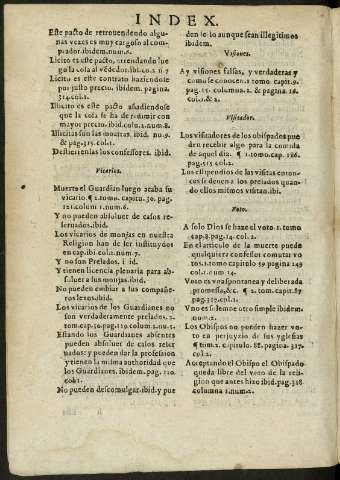 INDEX.
Este pacto de retrouendendo algu-
nas vezes es muy cargoso al com-
prador.ibidem.num.6.
Licito es este pacto, arrendando lue
go la cosa al vẽdedor.ibi.co.2 n 7
Licito es este contrato haziendose
por justo precio. ibidem. pagina.
314.col.1.
Illicito es este pacto añadiendose
que la cosa se ha de redimir con
mayor precio. ibid.colu.2.num.8.
Illicitas son las mohatras. ibid. nu.9.
& pag.315.col.1.
Destierrenlas los confessores. ibid.
Vicarios.
Muerto el Guardian luego acaba su
vicario. ¶ 2.tomo. capitu. 30. pag.
121.colum 1.num.6.
Y no pueden absoluer de casos re-
seruados.ibid.
Los vicarios de monjas en nuestra
Religion han de ser instituydos
en cap.ibi colu.2.num.7.
Y no son Prelados. i id.
Y tienen licencia plenaria para ab-
soluer a sus monjas.ibid.
No pueden embiar a sus compañe-
ros lexos.ibid.
Los vicarios de los Guardianes no
son verdaderamente prelados. 2.
tom.cap.30.pag.119.colum 2.num.3.
Estando los Guardianes absentes
pueden absoluer de casos reser
uados: y pueden dar la profession
y tienen la misma authoridad que
los Guardianes. ibidem. pag. 120.
col.1.
No pueden descomulgar.ibid.y pue
den se lo aunque sean illegitimos
ibidem.
Visiones.
Ay visiones falsas, y verdaderas y
como se conocen. 1 tomo. capit.9.
pag.15. columna. 2. & pagina 16.
col.1.& 2.
Visitador.
Los visitadores de los obispados pue
den recebir algo para la comida
de aquel dia. ¶ 1.tomo.cap. 126.
pag.515 col.2.
Los estipendios de las visitas enton-
ces se deuen a los prelados quan-
do ellos mismos visitan.ibi.
Voto.
A solo Dios se haze el voto. 1. tomo
cap.8.pag.14. col.2.
En el articulo de la muerte puede
qualquiera confessor comutar vo
tos.1.tomo capitulo 59 pagina 149
col.1.num 14.
Voto es voa spontanea y deliberada
promessa,&c. ¶ 2. tom.capit.87
pag.317.col.1.
Vno es solemne otro simple ibidem.
num.2.
Los Obispos no pueden hazer vo-
to en perjuyzio de sus yglesias
¶ tom.2. capitulo. 88. pagina. 327.
col.2.
Acceptando el Obispo el Obispado
queda libre del voto de la reli-
gion que antes hizo ibid.pag.328
columna 1.num.2.